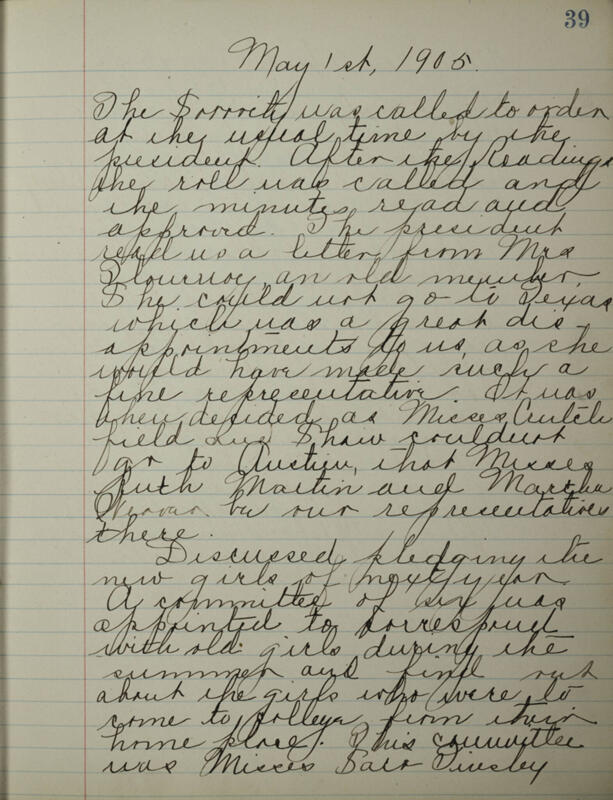 39
May 1st, 1905.
The Sorority was called to order
at the usual time by the
president. After the Readings
the roll was called and
the minutes read and
approved. The president
read us a letter from Mrs
Flournoy, an old member.
She could not go to Texas
which was a great dis-
appointments to us, as she
would have made such a
fine representative. It was
then decided as Misses Crutch
field and Shaw couldnt
go to Austin, that Misses
Ruth Martin and Martha
be our representatives
there.
Discussed pledging the
new girls of next year.
A committee of six was
appointed to correspond
with old girls during the
summer and find out
about the girls who were to
come to college from their
home place. This committee
was Misses Sara Tinsley